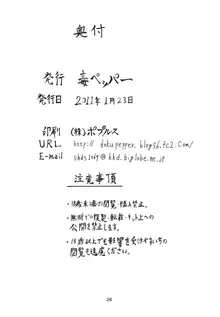 奥付
発行 毒ペッパー
発行日 2011年1月23日
印刷 (株)ポプルス
URL. http://dokupepper.blog56.fc2.com/
E-mail skds1069@kkd.biglobe.ne.jp
注意事項
・18歳未満の閲覧・購入禁止。
・無断での複製・転載・ネット上への
公開を禁止します。
・18歳以上でも影響を受けやすい方の
閲覧も遠慮ください。
26